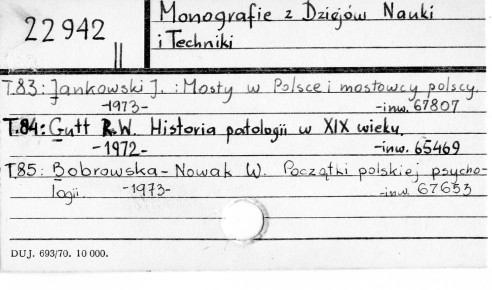 22 942
||
Monografie z Dziejów Nauki
i Techniki
T.83: Jankowski J. : Mosty w Polsce i mostowcy polscy.
-1973- -inw. 67807
T.84: Gutt R.W. Historia patologii w XIX wieku.
-1972- -inw. 65469
T.85: Bobrowska-Nowak W. Początki polskiej psycho-
logii. -1973- -inw. 67653
DUJ. 693/70. 10 000.